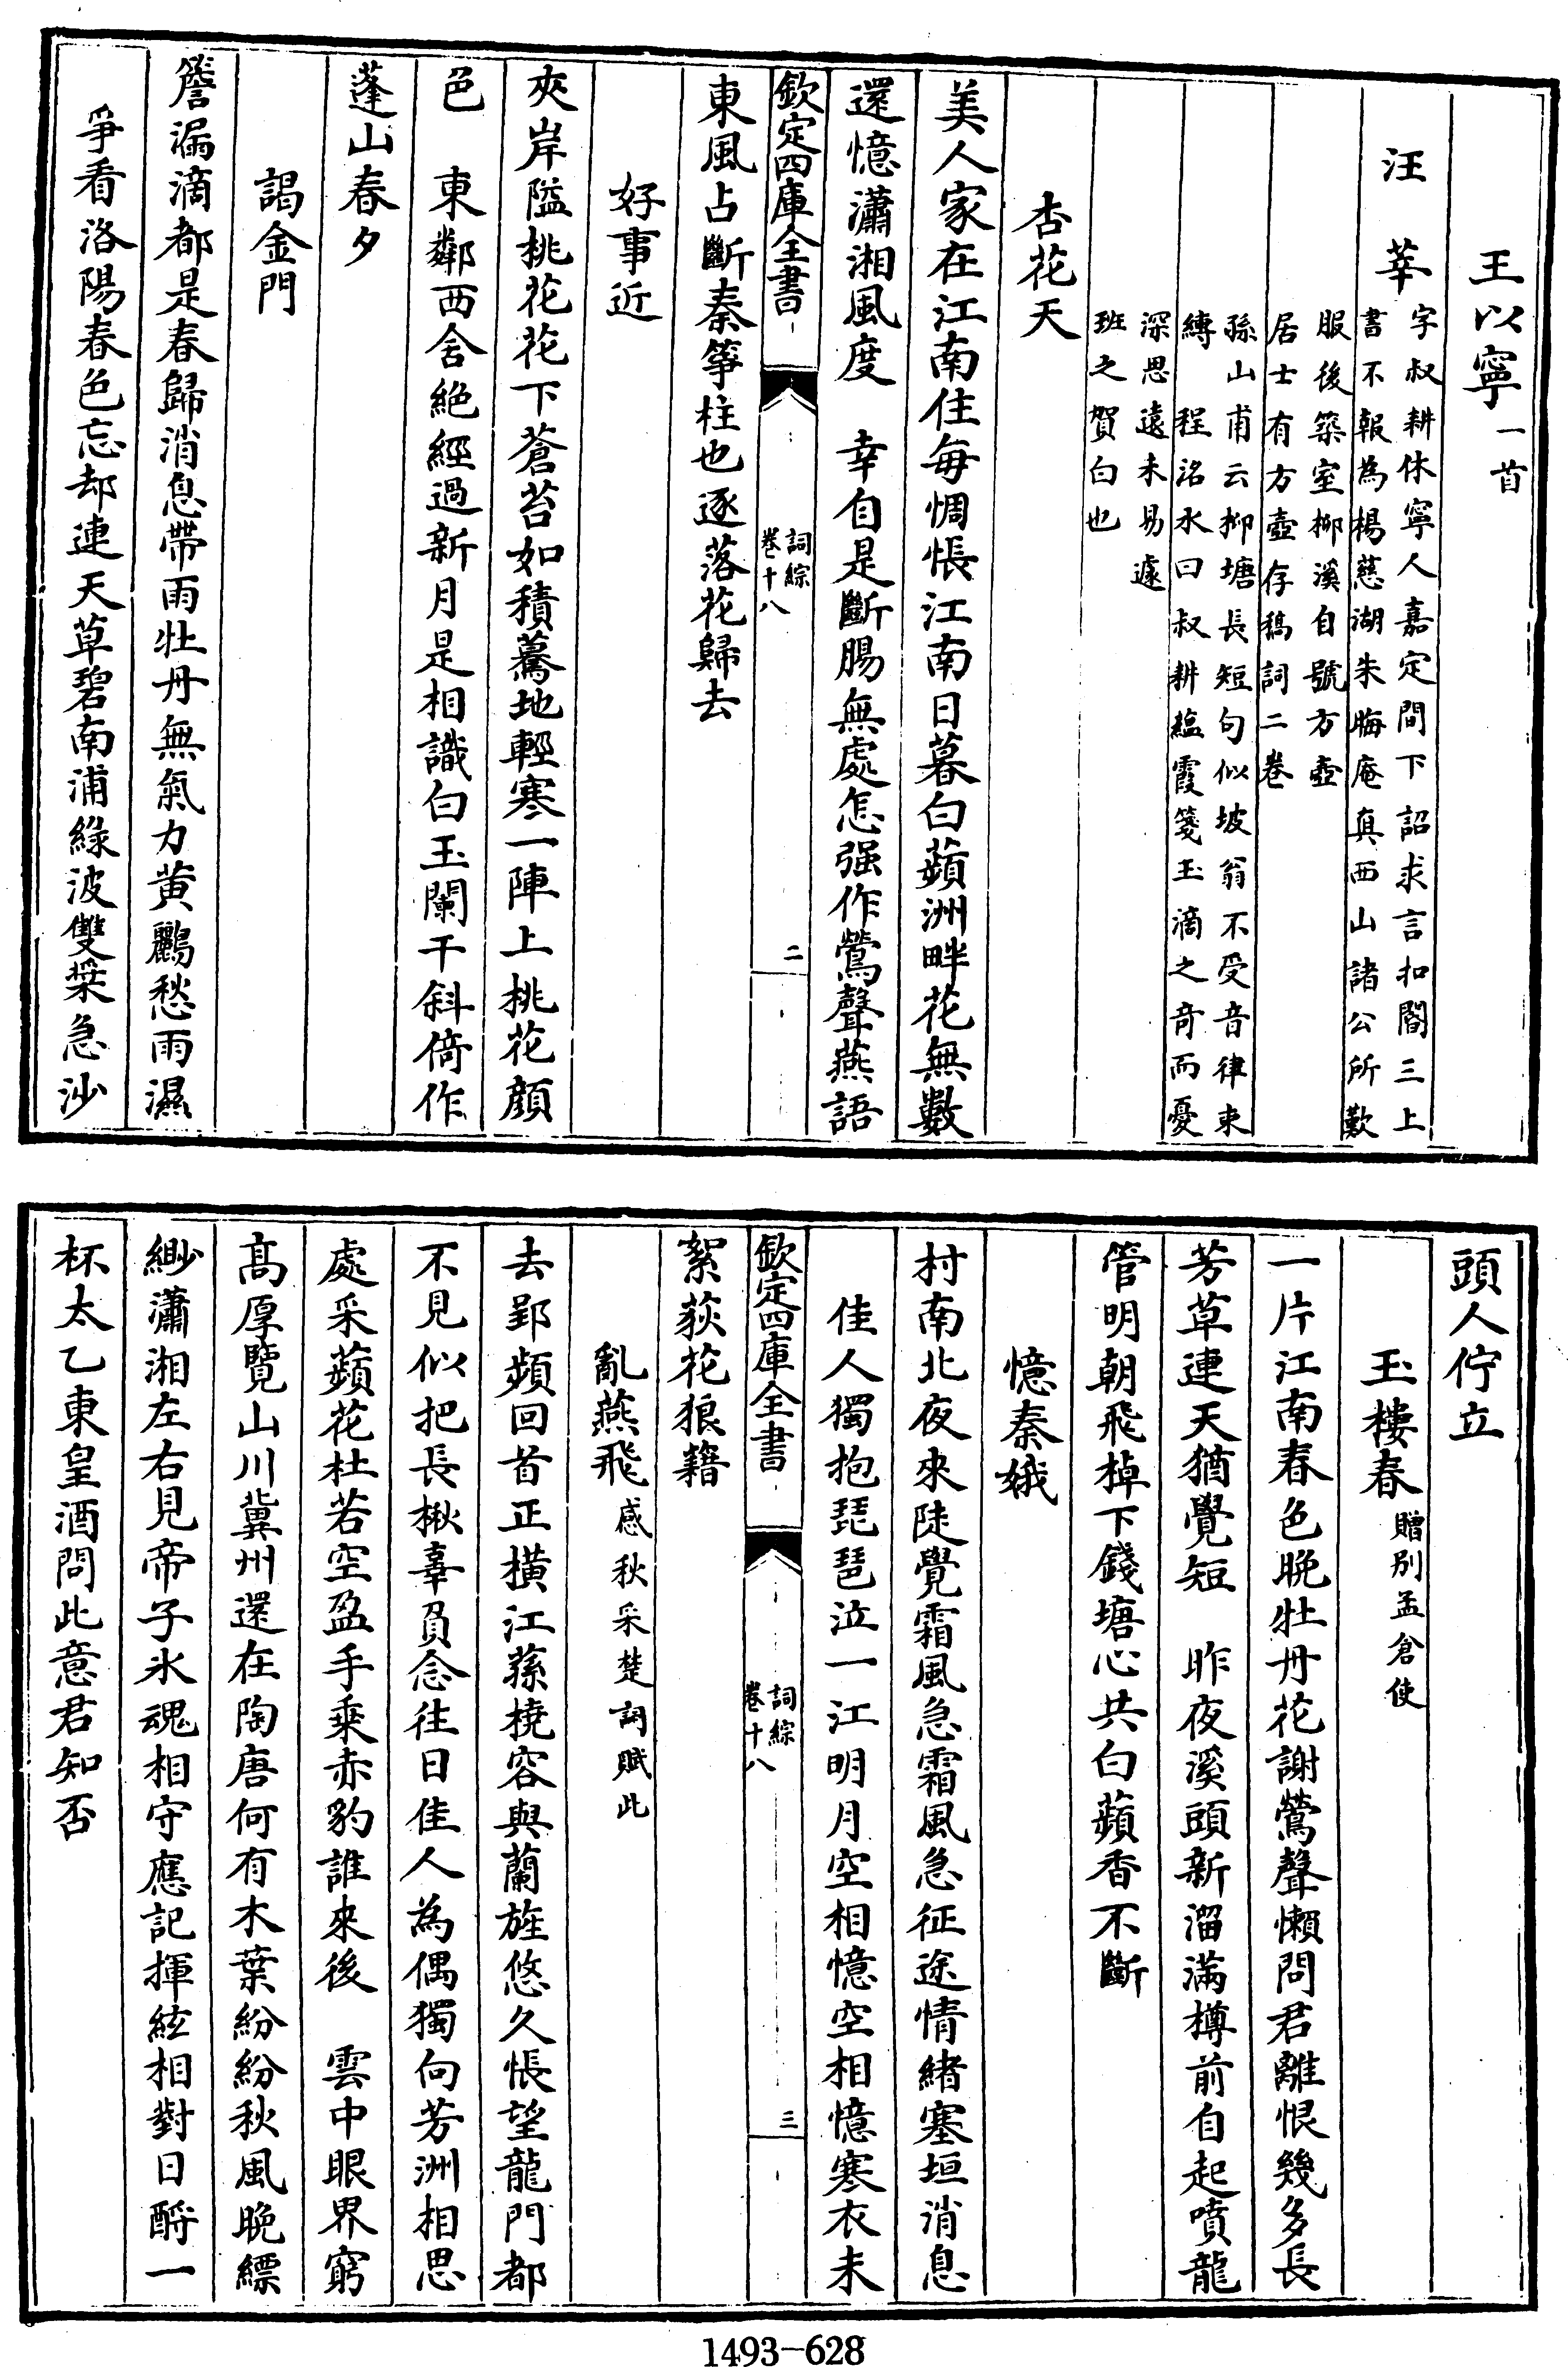 王以寧一首
汪　莘
字叔耕休寧人嘉定間下詔求言扣閽三上
書不報為楊慈湖朱晦庵真西山諸公所歎
服後築室柳溪自號方壺
居士有方壺存稿詞二卷
孫山甫云柳塘長短句似坡翁不受音律束
縛　程洺水曰叔耕緼霞箋玉滴之奇而憂
深思遠未易遽
班之賀白也
杏花天
美人家在江南住每惆悵江南日暮白蘋洲畔花無數
還憶瀟湘風度　幸自是斷腸無處怎强作鶯聲燕語
欽定四庫全書
詞綜
卷十八
二
東風占斷秦箏柱也逐落花歸去
好事近
夾岸隘桃花花下蒼苔如積驀地輕寒一陣上桃花顔
色　東鄰西舍絶經過新月是相識白玉闌干斜倚作
蓬山春夕
謁金門
簷漏滴都是春歸消息帶雨牡丹無氣力黄鸝愁雨濕
爭看洛陽春色忘却連天草碧南浦綠波雙槳急沙
頭人佇立
玉樓春贈别孟倉使
一片江南春色晚牡丹花謝鶯聲懶問君離恨幾多長
芳草連天猶覺短　昨夜溪頭新溜滿樽前自起噴龍
管明朝飛棹下錢塘心共白蘋香不斷
憶秦娥
村南北夜來陡覺霜風急霜風急征途情緒塞垣消息
佳人獨抱琵琶泣一江明月空相憶空相憶寒衣未
欽定四庫全書
詞綜
卷十八
三
絮荻花狼籍
亂燕飛感秋采楚詞賦此
去郢頻回首正横江蓀橈容與蘭旌悠久悵望龍門都
不見似把長楸辜負念往日佳人為偶獨向芳洲相思
處采蘋花杜若空盈手乗赤豹誰來後　雲中眼界窮
髙厚覽山川冀州還在陶唐何有木葉紛紛秋風晚縹
緲瀟湘左右見帝子氷魂相守應記揮絃相對日酹一
杯太乙東皇酒問此意君知否
1493—628